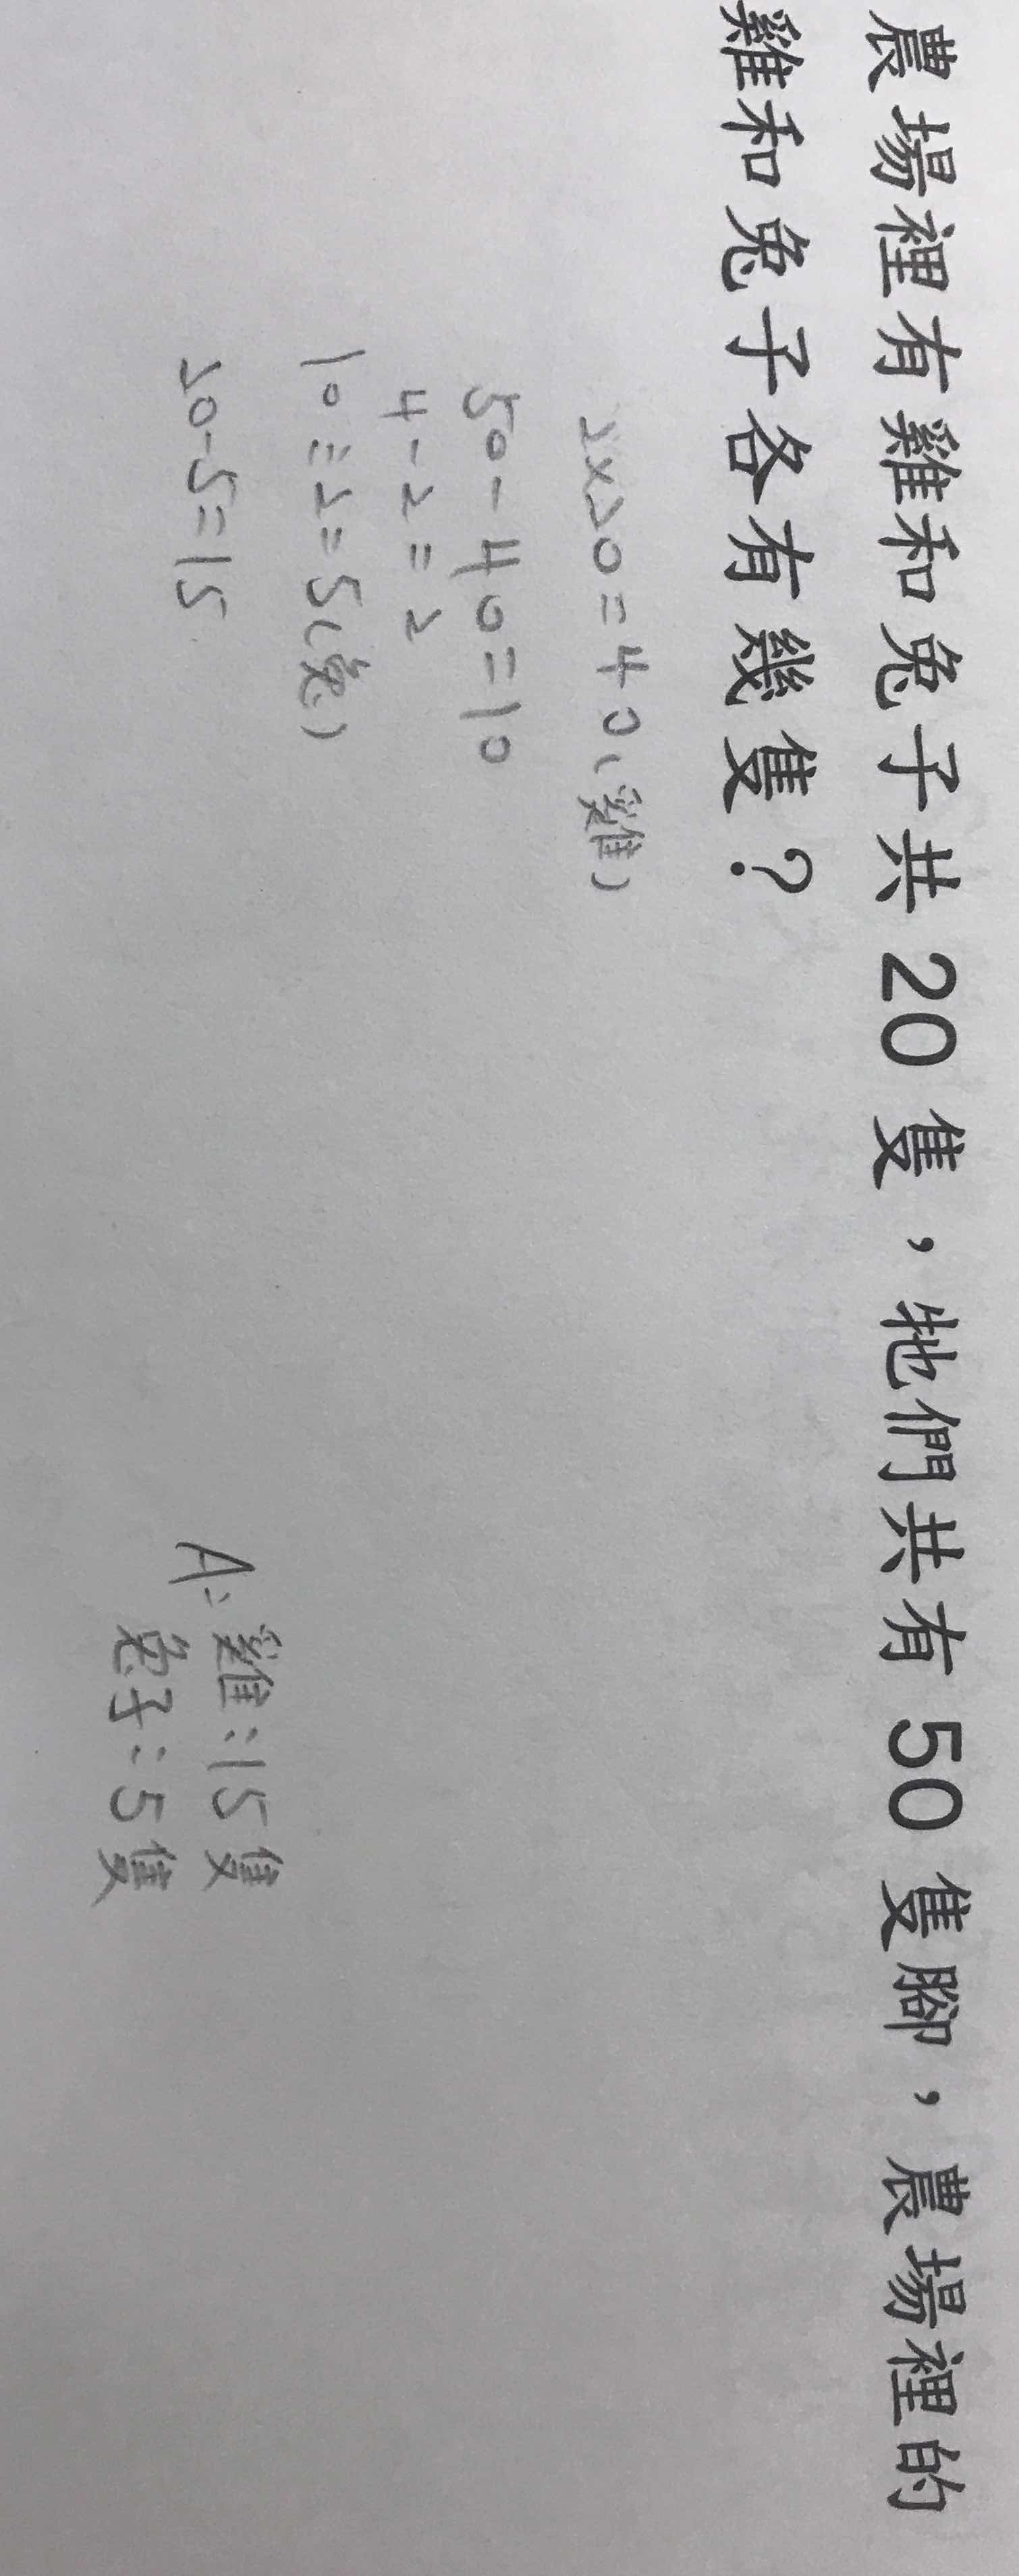 農場裡有雞和兔子共 20 隻，牠們共有 50 隻腳，農場裡的
雞和兔子各有幾隻？
2×20=40(雞)
50-40=10
4-2=2
10÷2=5(兔)
20-5=15
A:雞:15隻
兔子:5隻